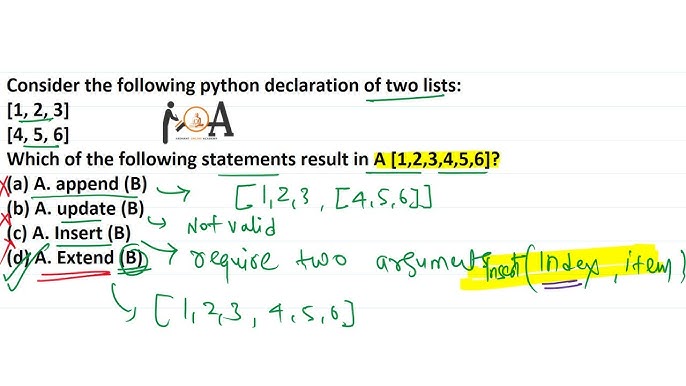 Consider the following python declaration of two lists:
[1, 2, 3]
[4, 5, 6]
A
Which of the following statements result in A [1,2,3,4,5,6]?
(a) A. append (B) → [1,2,3, [4,5,6]]
(b) A. update (B) → Not valid
(c) A. Insert (B) → require two arguments Insert (Index, item)
(d) A. Extend (B)
[1,2,3, 4,5,6]